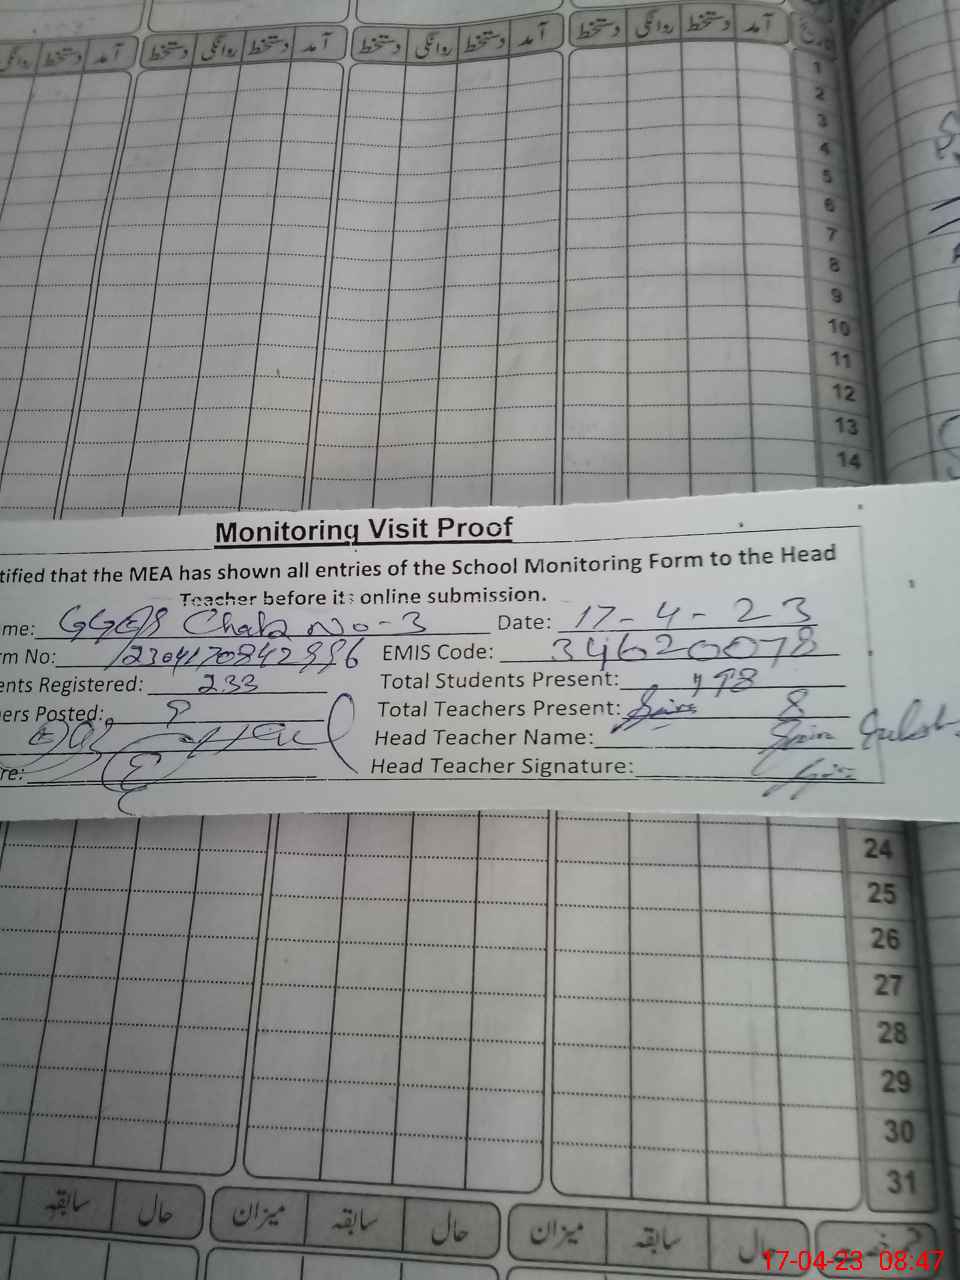 آمد دستخط روانگی دستخط آمد دستخط روانگی دستخط آمد دستخط روانگی دستخط آمد دستخط روانگی
1
2
3
4
5
6
7
8
9
10
11
12
13
14
Monitoring Visit Proof
tified that the MEA has shown all entries of the School Monitoring Form to the Head
Teacher before its online submission.
me: GGES Chak No-3 Date: 17-4-23
rm No: EMIS Code: 34620078
ents Registered: 233 Total Students Present: 198
ers Posted: 8 Total Teachers Present: 8
Head Teacher Name:
re: Head Teacher Signature:
24
25
26
27
28
29
30
31
حال سابقہ میزان حال سابقہ میزان حال سابقہ
17-04-23 08:47